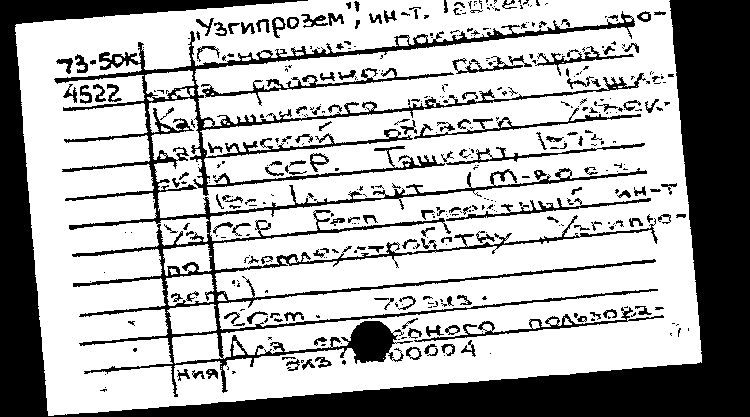 „Узгипрозем", ин-т. Ташкент.
73-50к Основные показатели про-
4522 екта районной планировки
Камашинского района Кашка-
дарьинской области Узбек-
ской ССР. Ташкент, 1973.
19с., 1л. карт (М-во с.х.
УзССР Респ проектный ин-т
по землеустройству „Узгипро-
зем").
20см. 70 экз.
Для служебного пользова-
ния. Экз. 000004